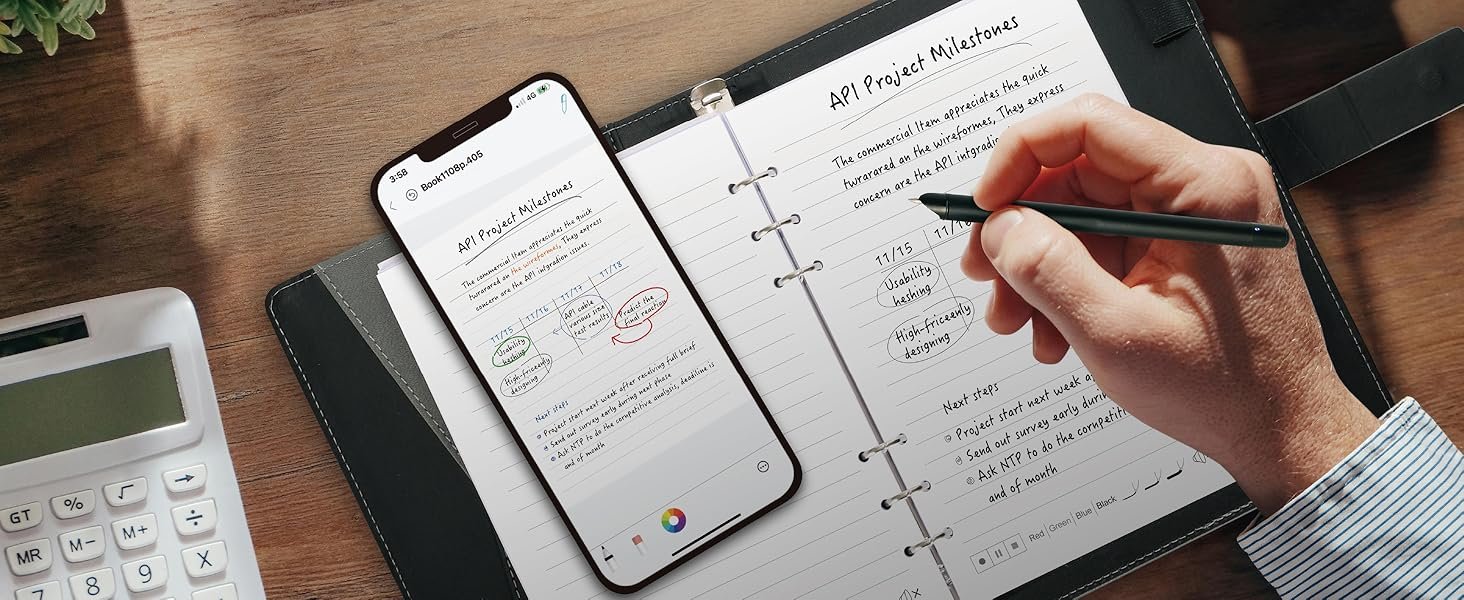 3:58
4G
Book1108p.405
API Project Milestones
The commercial Item appreciates the quick
twrarared an the wireformes, They express
concern are the API intgration issues.
11/15
11/16
11/17
11/18
Usability
heshing
High-friceenly
designing
API cable
various sine
test results
Predict the
final reaction
Next steps
Project start next week after receiving full brief
Send out survey early during next phase
Ask NTP to do the cornpetitive analysis, deadline is
and of month
API Project Milestones
The commercial Item appreciates the quick
twrarared an the wireformes, They express
concern are the API intgratio
11/15
11/16
Usability
heshing
High-friceenly
designing
Next steps
Project start next week a
Send out survey early durin
Ask NTP to do the cornpetiti
and of month
Red Green Blue Black
GT % √ →
MR M- M+ ÷
7 8 9 X